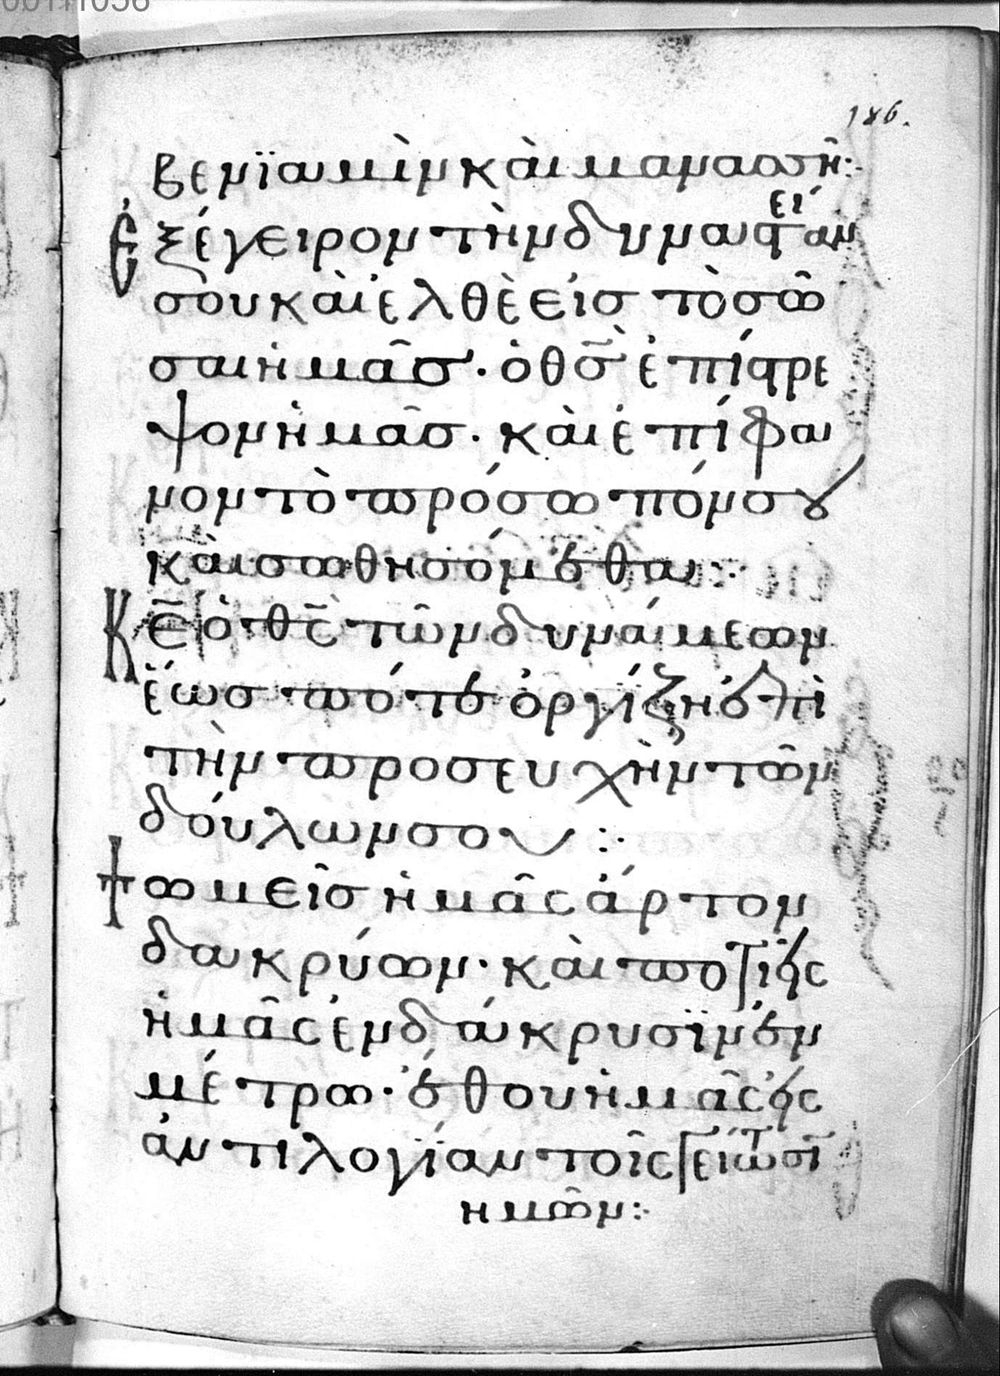 00111058
186.
βενϊαμὶν καὶ μανασσῆ:·
Ἐξέγειρον τὴν δυναστείαν
σου καὶ ἐλθὲ εἰσ τὸ σῶ
σαι ἡμᾶσ· ὁ θ̅σ̅ ἐπίστρε
ψον ἡμᾶσ· καὶ ἐπίφα
νον τὸ πρόσωπόν σου
καὶ σωθησόμεθα:·
Κ̅ε̅ ὁ θ̅ς̅ τῶν δυνάμεων
ἕωσ πότε ὀργίζη ἐπὶ
τὴν προσευχὴν τῶν
δούλων σου:·
Ψωμεῖσ ἡμᾶς ἄρτον
δακρύων· καὶ ποτιεῖς
ἡμᾶς ἐν δάκρυσϊν ἐν
μέτρω· ἔθου ἡμᾶς εἰς
ἀντιλογίαν τοῖς γείτοσϊ
ημῶν:·